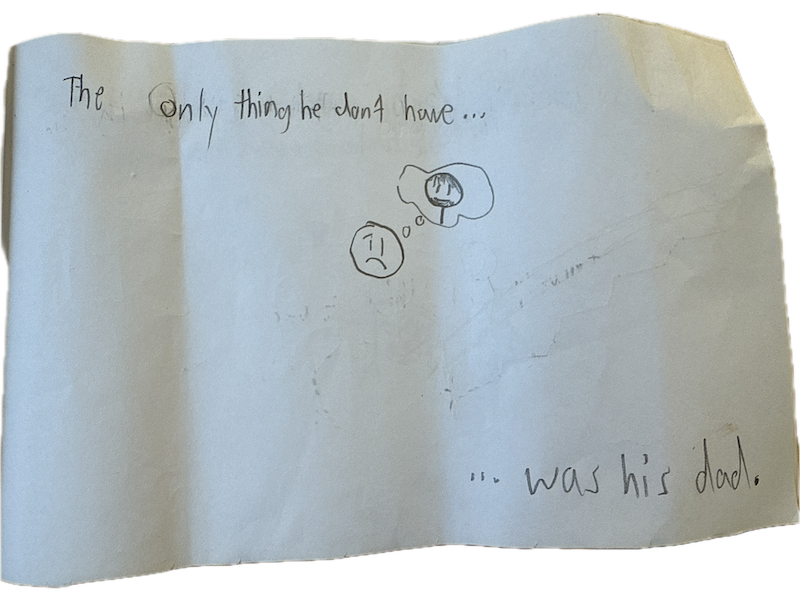 The only thing he don't have...
... was his dad.